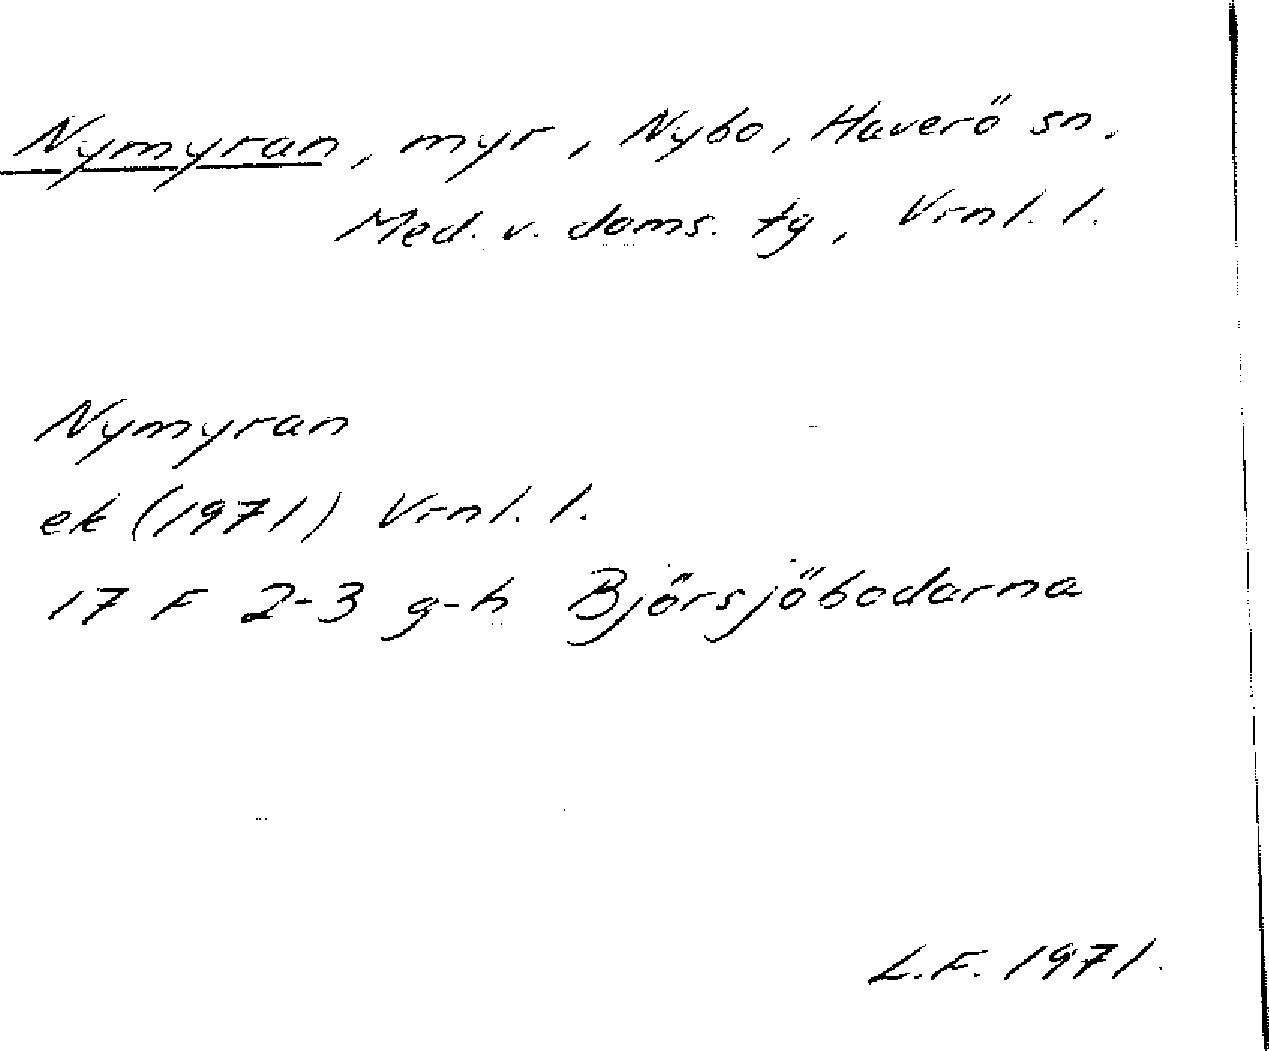 Nymyran, myr, Nybo, Haverö sn.
Med. v. doms. tg, Vrnl. l.
Nymyran
ek (1971) Vrnl. l.
17 F 2-3 g-h Björsjöbodarna
L.F. 1971.